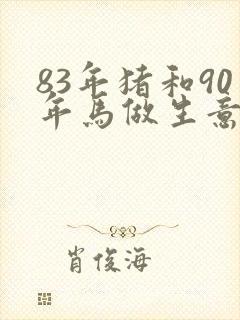 83年猪和90
年马做生意
肖俊海